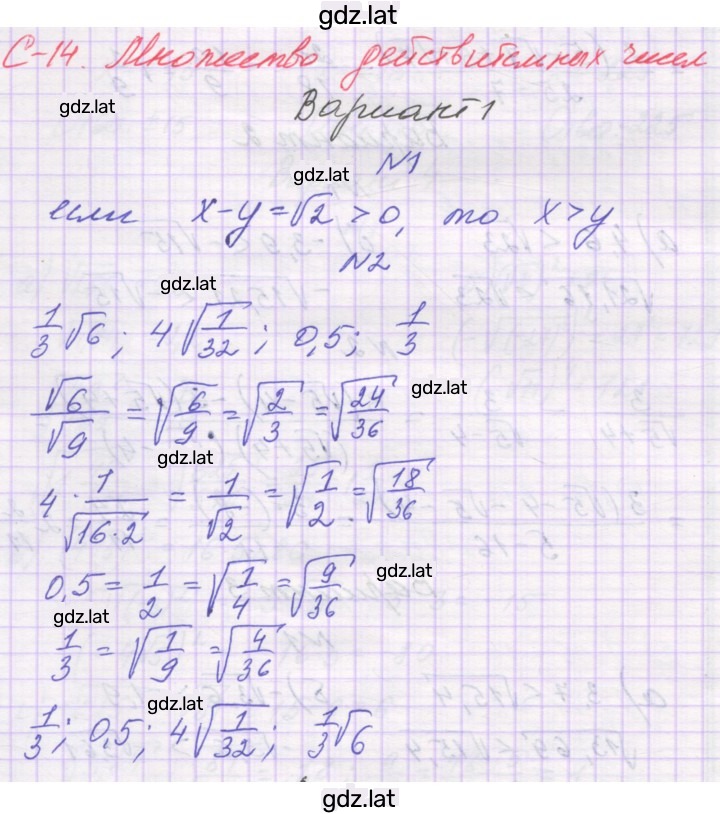 gdz.lat
С-14. Множество действительных чисел
gdz.lat
Вариант 1
№1
gdz.lat
если x-y=√2>0, то x>y
№2
gdz.lat
1/3 √6; 4√(1/32); 0,5; 1/3
√6/√9 = √(6/9) = √(2/3) = √(24/36)
gdz.lat
gdz.lat
4 · 1/√(16·2) = 1/√2 = √(1/2) = √(18/36)
0,5 = 1/2 = √(1/4) = √(9/36)
gdz.lat
gdz.lat
1/3 = √(1/9) = √(4/36)
gdz.lat
1/3; 0,5; 4√(1/32); 1/3 √6
gdz.lat